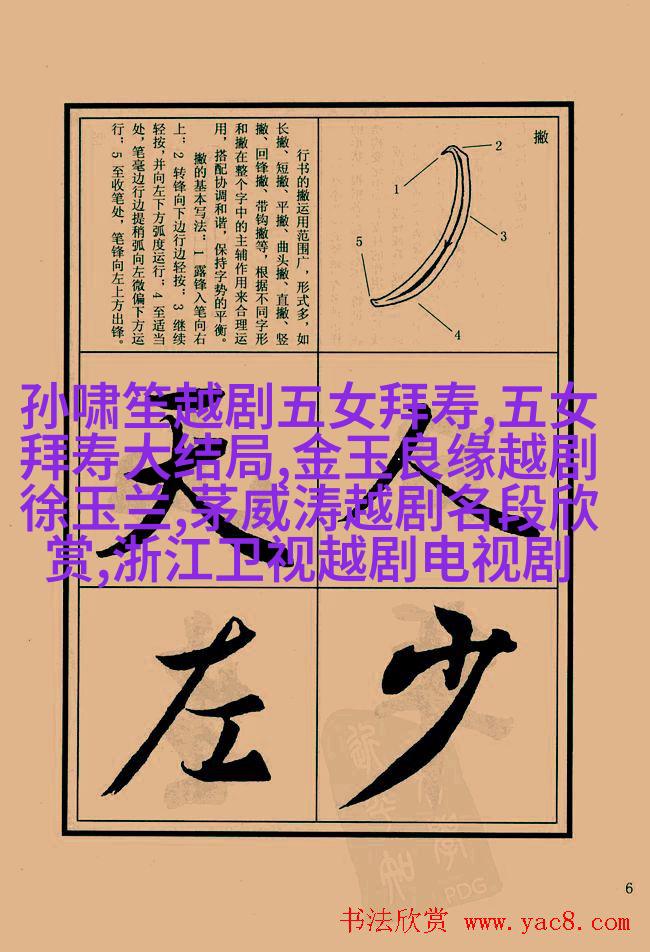 撇
1
2
3
4
5
行书的撇运用范围广，形式多，如
长撇、短撇、平撇、曲头撇、直撇、竖
撇、回锋撇、带钩撇等，根据不同字形
和撇在整个字中的主辅作用来合理运
用，搭配协调和谐，保持字势的平衡。
撇的基本写法：1 露锋入笔向右
上；2 转锋向下边行边轻按；3 继续
轻按，并向左下方弧度运行；4 至适当
处，笔毫边行边提稍弧向左微偏下方运
行；5 至收笔处，笔锋向左上方出锋。
孙啸笙越剧五女拜寿,五女
拜寿大结局,金玉良缘越剧
徐玉兰,茅威涛越剧名段欣
赏,浙江卫视越剧电视剧
人
天
少
左
PDG
6
书法欣赏 www.yac8.com